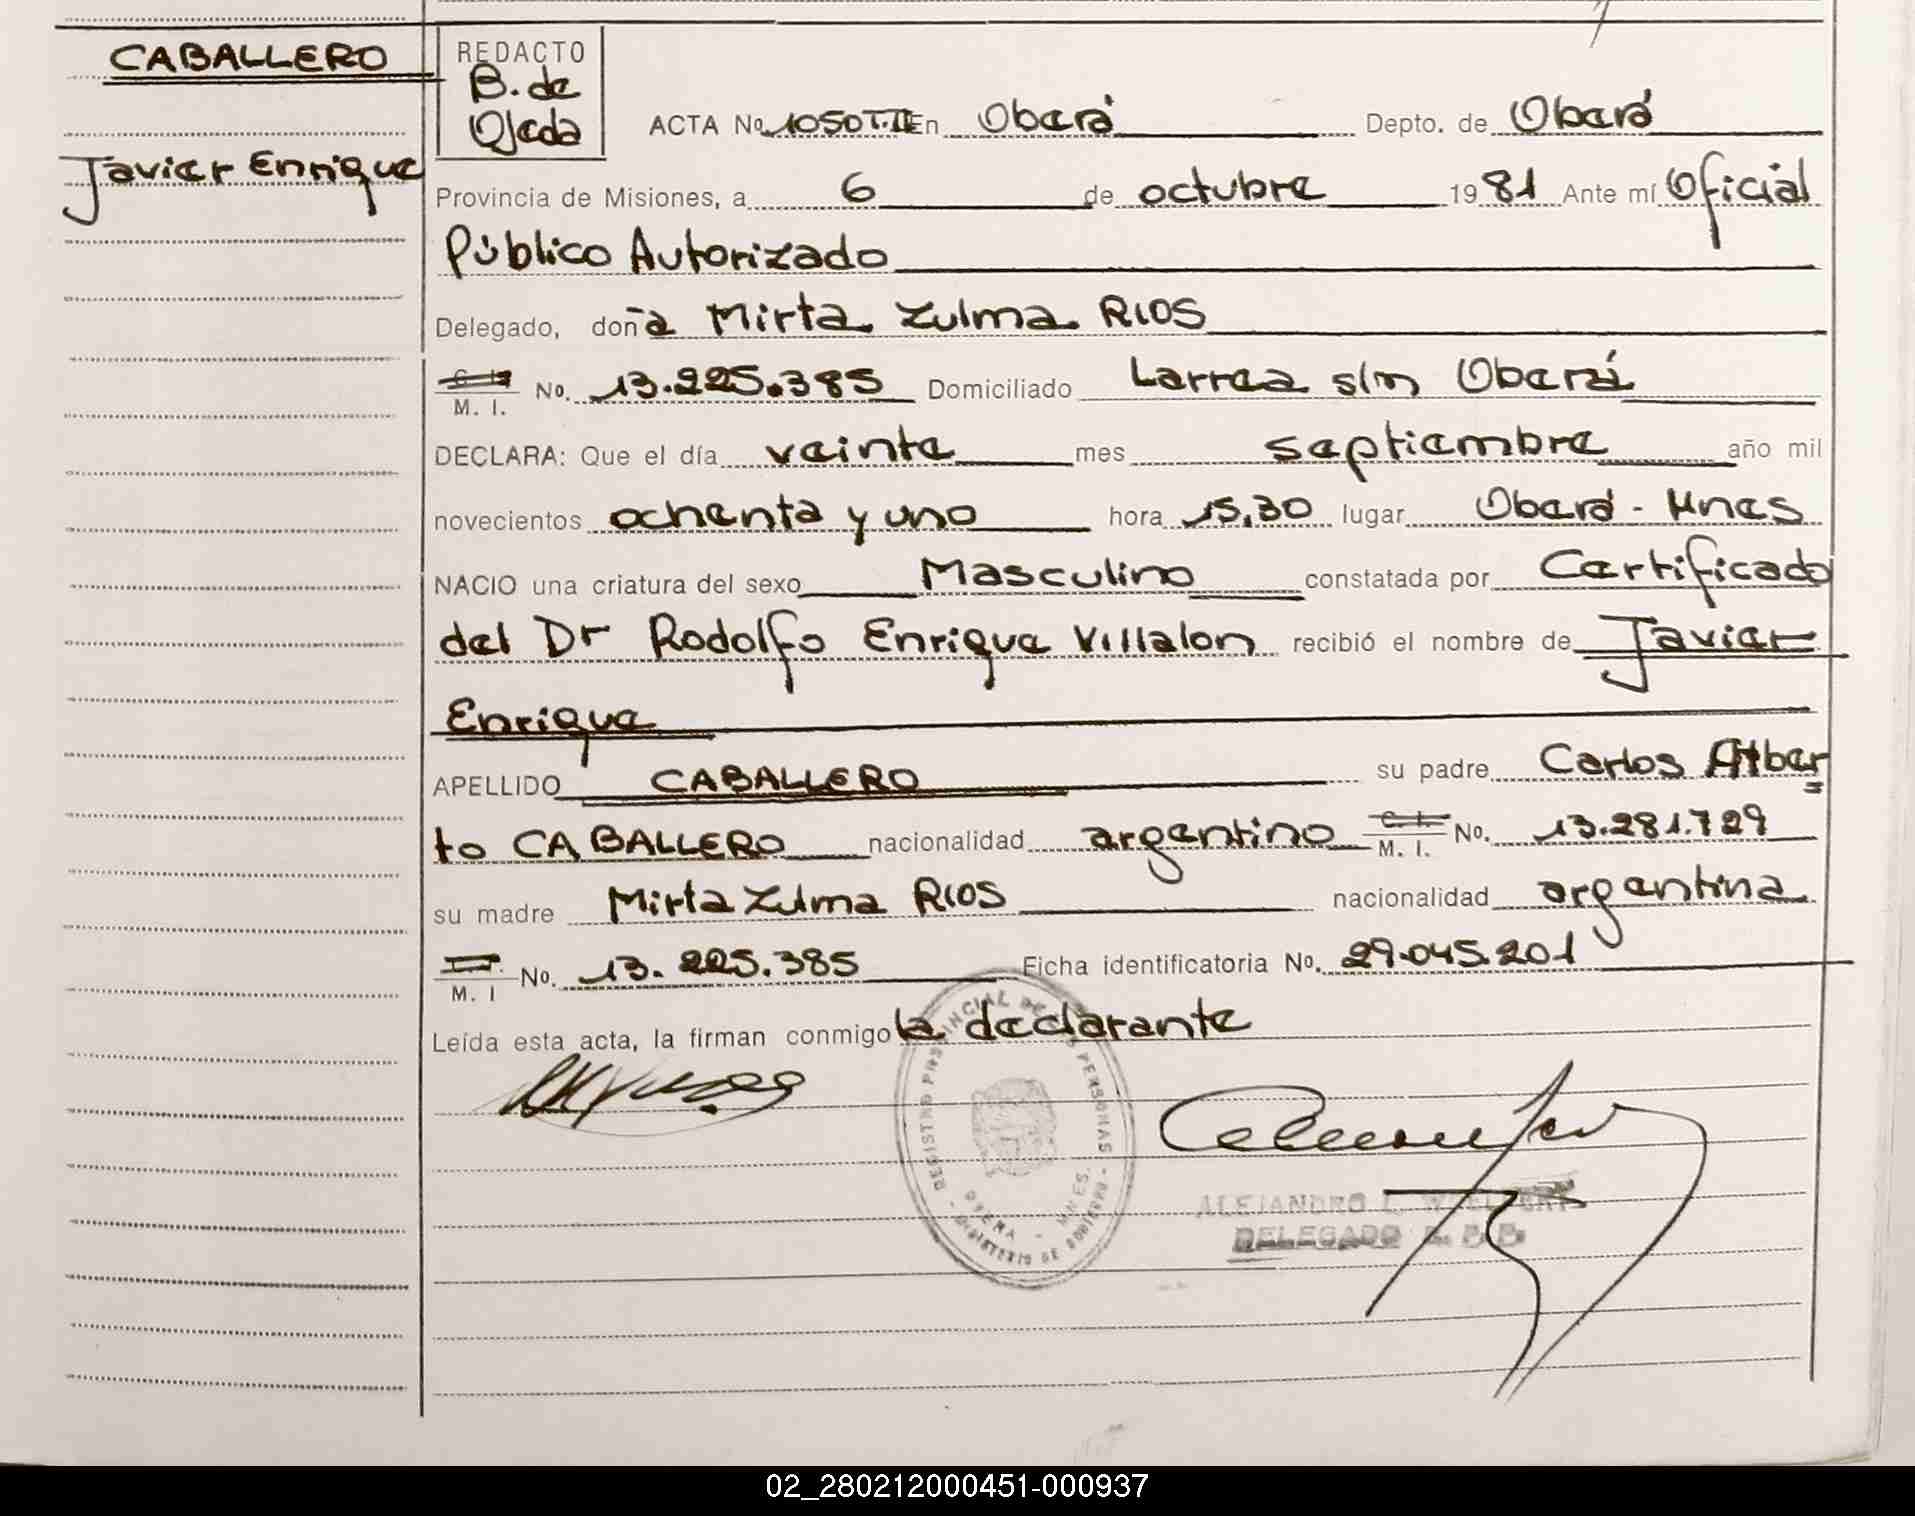 CABALLERO
Javier Enrique
REDACTO
B. de
Ojeda
ACTA No. 1050 T.II En Oberá Depto. de Oberá
Provincia de Misiones, a 6 de octubre 1981 Ante mí Oficial
Público Autorizado
Delegado, doña Mirta Zulma RIOS
M. I. No. 13.225.385 Domiciliado Larrea s/n Oberá
DECLARA: Que el día veinte mes septiembre año mil
novecientos ochenta y uno hora 15,30 lugar Oberá - Mnes
NACIO una criatura del sexo Masculino constatada por Certificado
del Dr Rodolfo Enrique Villalon recibió el nombre de Javier
Enrique
APELLIDO CABALLERO su padre Carlos Alber
to CABALLERO nacionalidad argentino C. I. M. I. No. 13.281.729
su madre Mirta Zulma RIOS nacionalidad argentina
M. I No. 13.225.385 Ficha identificatoria No. 29.045.201
Leída esta acta, la firman conmigo la declarante
REGISTRO PROVINCIAL DE LAS PERSONAS - MINISTERIO DE GOBIERNO -
OBERA - MNES.
ALEJANDRO L.
DELEGADO
02_280212000451-000937